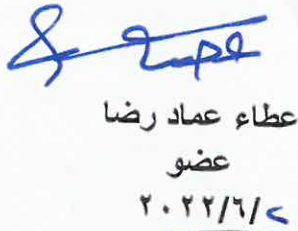 عطاء عماد رضا
عضو
٢٠٢٢/٦/٢